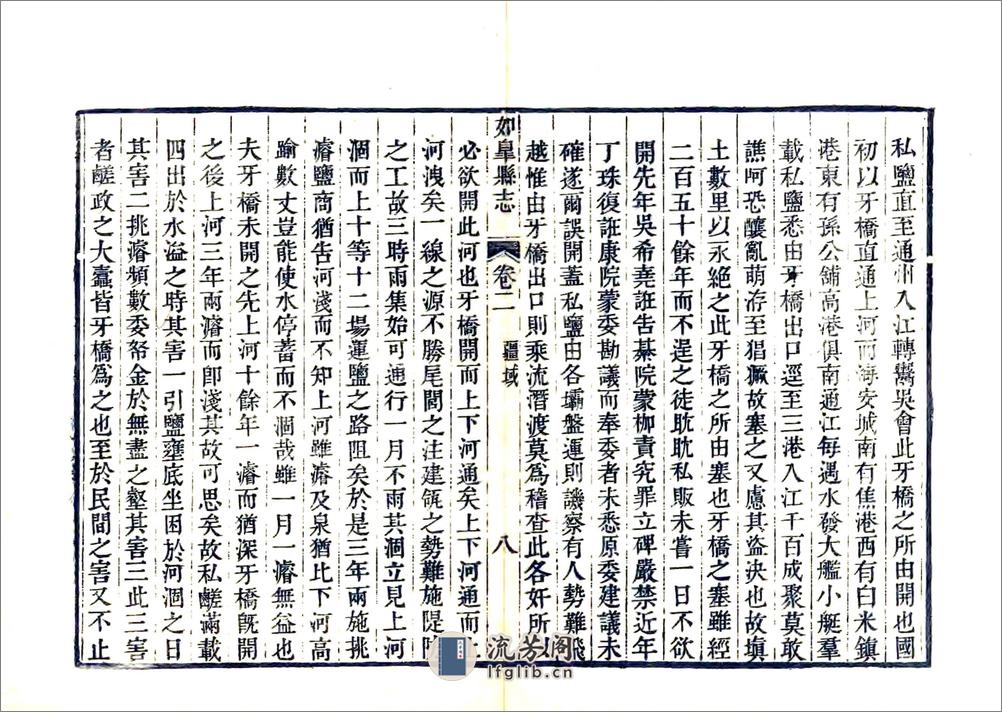 私鹽直至通州入江轉鬻吳會此牙橋之所由開也國
初以牙橋直通上河而海安城南有焦港西有白米鎮
港東有孫公舖高港俱南通江每遇水發大艦小艇羣
載私鹽悉由牙橋出口逕至三港入江千百成聚莫敢
譙呵恐釀亂萌存至猖獗故塞之又慮其盜決也故塡
土數里以永絕之此牙橋之所由塞也牙橋之塞雖經
二百五十餘年而不逞之徒耽耽私販未嘗一日不欲
開先年吳希堯誑告綦院蒙枷責究罪立碑嚴禁近年
丁珠復誑康院蒙委勘議而奉委者未悉原委建議未
確遂爾誤開蓋私鹽由各壩盤運則譏察有人勢難飛
越惟由牙橋出口則乘流潛渡莫爲稽查此各奸所以
如皐縣志 卷二 疆域 八
必欲開此河也牙橋開而上下河通矣上下河通而上
河洩矣一線之源不勝尾閭之注建瓴之勢難施隄防
之工故三時雨集始可通行一月不雨其涸立見上河
涸而上十等十二場運鹽之路阻矣於是三年兩施挑
濬鹽商猶告河淺而不知上河雖濬及泉猶比下河高
踰數丈豈能使水停蓄而不涸哉雖一月一濬無益也
夫牙橋未開之先上河十餘年一濬而猶深牙橋旣開
之後上河三年兩濬而卽淺其故可思矣故私鹺滿載
四出於水溢之時其害一引鹽壅底坐困於河涸之日
其害二挑濬頻數委帑金於無盡之壑其害三此三害
者鹺政之大蠧皆牙橋爲之也至於民間之害又不止
流芳阁
lfglib.cn